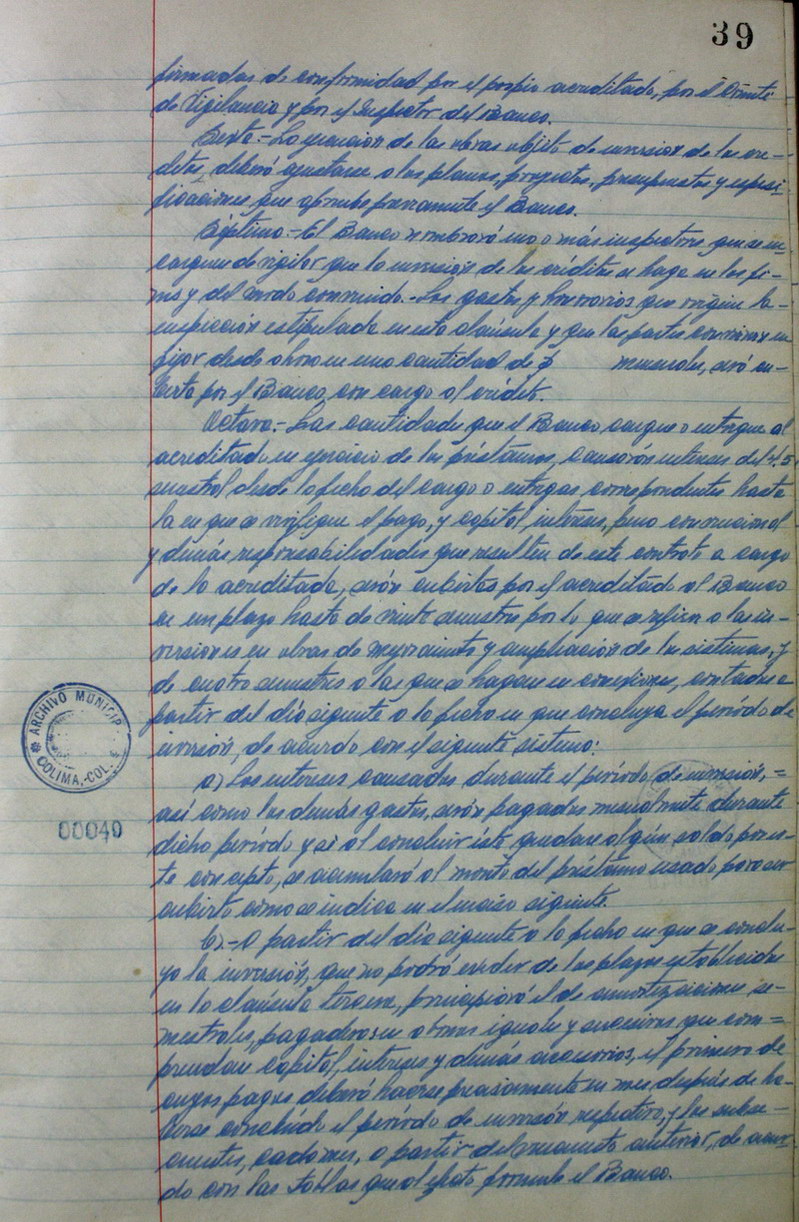 39
firmadas de conformidad por el propio acreditado, por el Comité
de Vigilancia y por el Inspector del Banco.
Sexta.- La ejecución de las obras objeto de inversión de los cré-
ditos, deberá ajustarse a los planos, proyectos, presupuestos y especi-
ficaciones que apruebe previamente el Banco.
Séptima.- El Banco nombrará uno o más inspectores que se en-
carguen de vigilar que la inversión de los créditos se haga en los fi-
nes y del modo convenido.- Los gastos y honorarios que origine la
inspección estipulada en esta cláusula y que las partes convienen en
fijar desde ahora en una cantidad de $ mensuales, será cu-
bierta por el Banco, con cargo al crédito.
Octava.- Las cantidades que el Banco cargue o entregue al
acreditado en ejercicio de los préstamos, causarán intereses del 4.5
semestral desde la fecha del cargo o entregas correspondientes hasta
la en que se verifique el pago, y capital, intereses, pena convencional
y demás responsabilidades que resulten de este contrato a cargo
de la acreditada, serán cubiertos por el acreditado al Banco
en un plazo hasta de veinte semestres por lo que se refiere a las in-
versiones en obras de mejoramiento y ampliación de los sistemas, y
de cuatro semestres a las que se hagan en conexiones, contados a
partir del día siguiente a la fecha en que concluya el período de
inversión, de acuerdo con el siguiente sistema:
a) Los intereses causados durante el período de inversión,=
así como los demás gastos, serán pagados mensualmente durante
dicho período y si al concluir éste quedase algún saldo por es-
te concepto, se acumulará al monto del préstamo usado para ser
cubierto como se indica en el inciso siguiente.
b).- A partir del día siguiente a la fecha en que se conclu-
ya la inversión, que no podrá exceder de los plazos establecidos
en la cláusula tercera, principiará el de amortizaciones se-
mestrales, pagaderas en abonos iguales y sucesivos que com=
prendan capital, intereses y demás accesorios, el primero de
cuyos pagos deberá hacerse precisamente un mes después de ha-
berse concluído el período de inversión respectivo, y los subse-
cuentes, cada mes, a partir del vencimiento anterior, de acuer-
do con las tablas que al efecto formule el Banco.
ARCHIVO MUNICIP
COLIMA,-COL.
00040